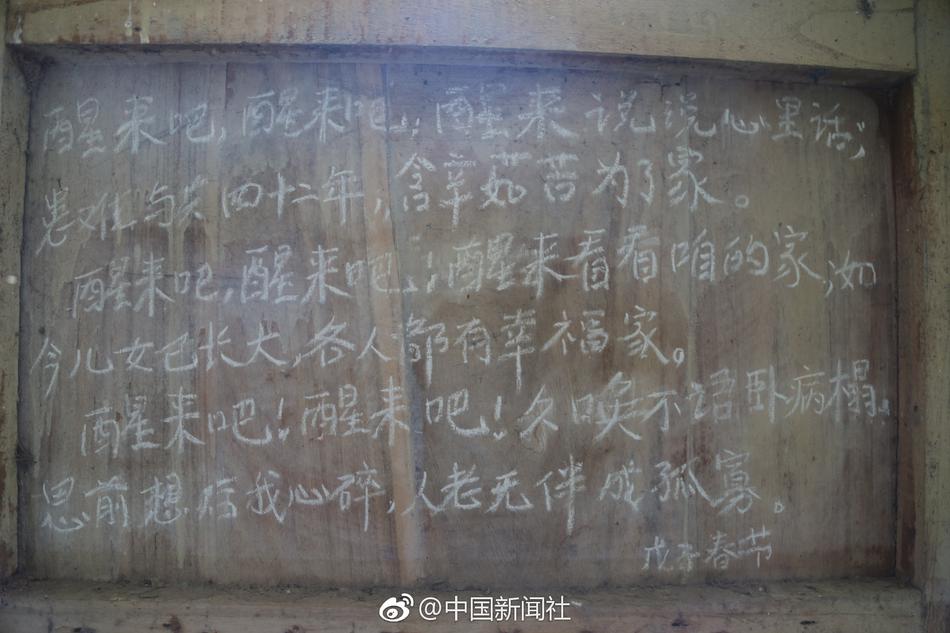 醒来吧,醒来吧,醒来说说心里话,
患难与共四十二年,含辛茹苦为了家。
醒来吧,醒来吧,醒来看看咱的家,如
今儿女已长大,各人都有幸福家。
醒来吧!醒来吧!久唤不语卧病榻,
思前想后我心碎,人老无伴成孤寡。
戊子春节
@中国新闻社